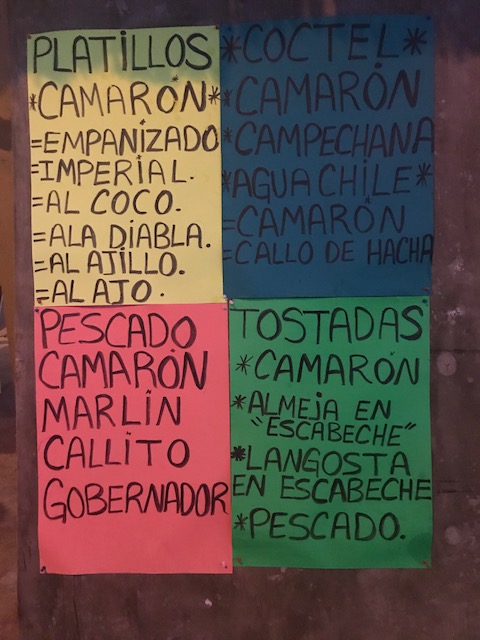 PLATILLOS
*CAMARÓN*
=EMPANIZADO
=IMPERIAL.
=AL COCO.
=ALA DIABLA.
=AL AJILLO.
=AL AJO.
*COCTEL*
*CAMARÓN
*CAMPECHANA
*AGUA CHILE*
=CAMARÓN
=CALLO DE HACHA
PESCADO
CAMARÓN
MARLIN
CALLITO
GOBERNADOR
TOSTADAS
*CAMARÓN
*ALMEJA EN
"ESCABECHE"
*LANGOSTA
EN ESCABECHE
*PESCADO.